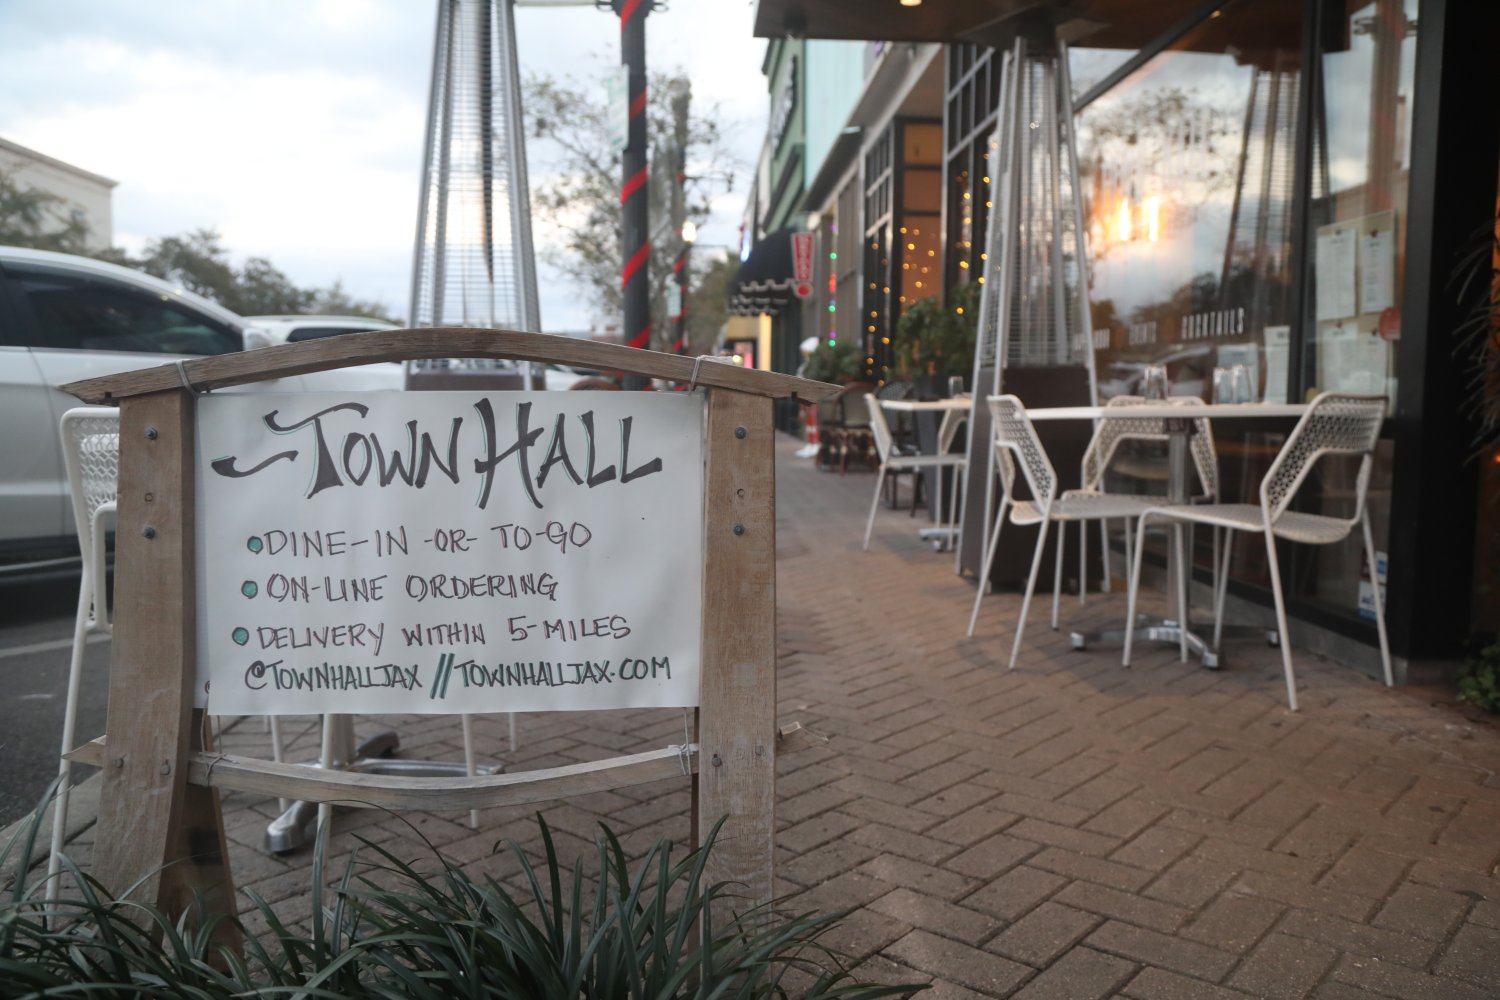 TOWN HALL
DINE-IN -OR- TO-GO
ON-LINE ORDERING
DELIVERY WITHIN 5-MILES
@TOWNHALLJAX // TOWNHALLJAX.COM
COCKTAILS